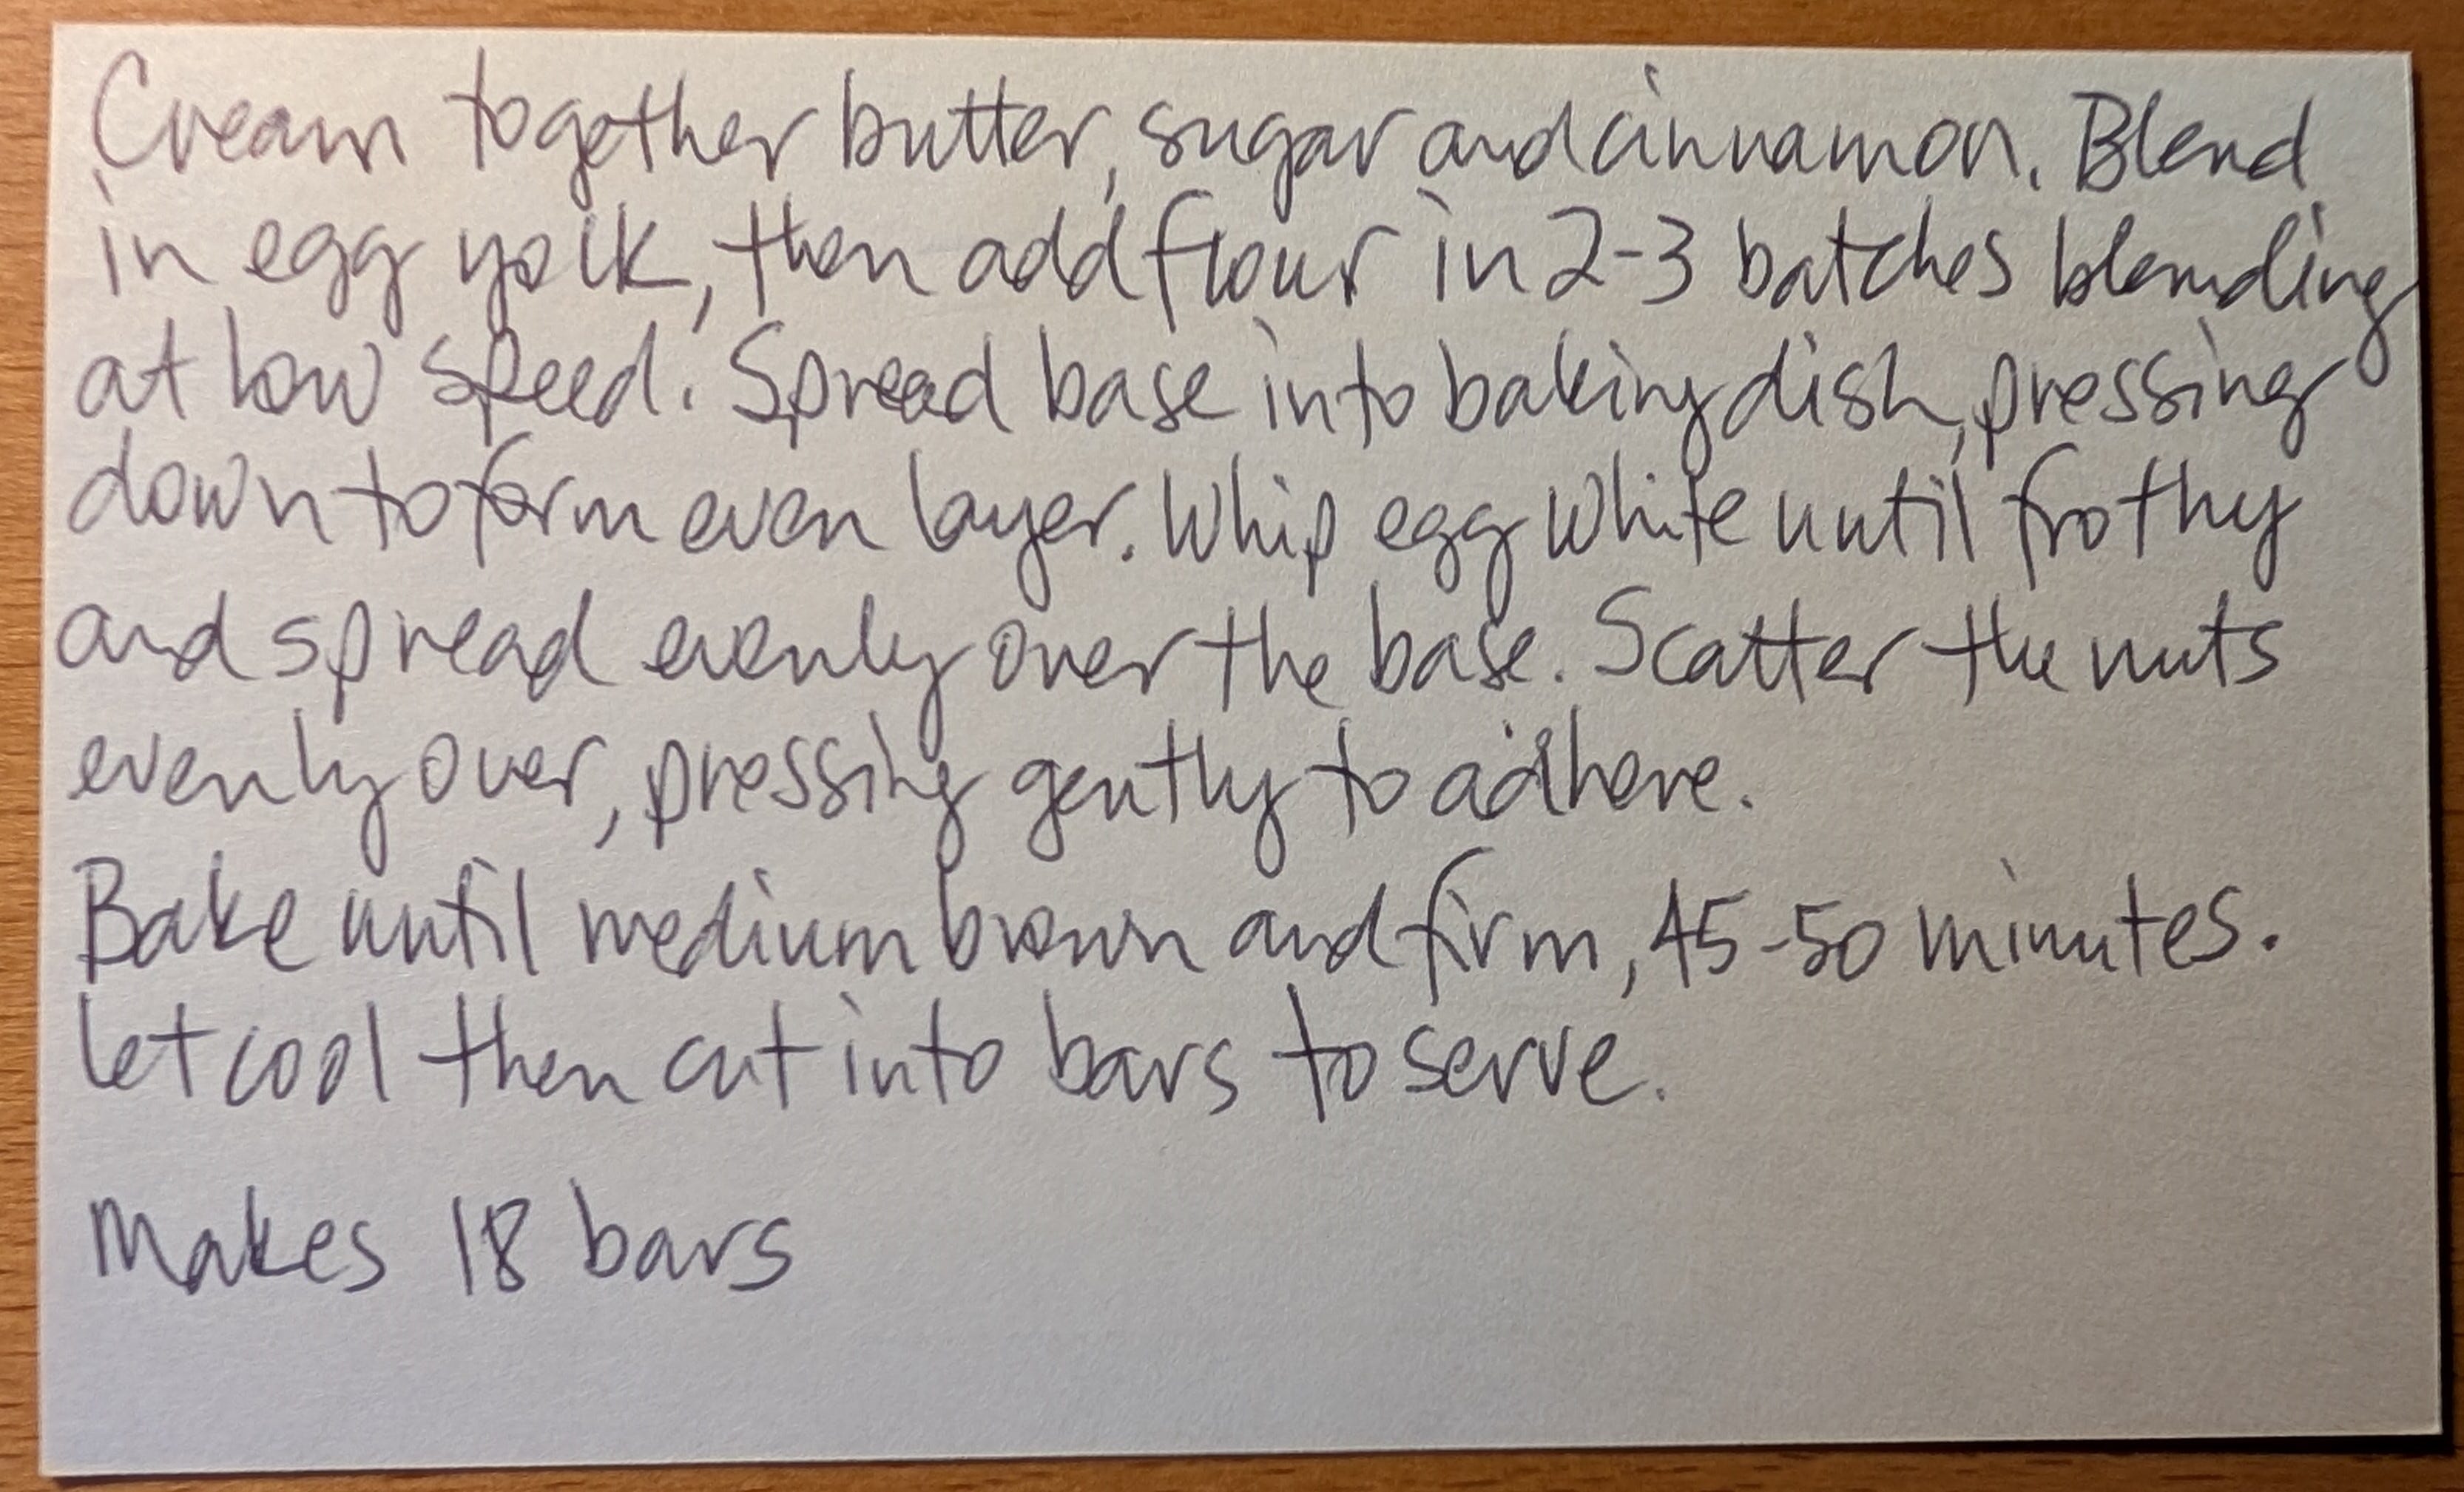 Cream together butter, sugar and cinnamon. Blend
in egg yolk, then add flour in 2-3 batches blending
at low speed. Spread base into baking dish, pressing
down to form even layer. Whip egg white until frothy
and spread evenly over the base. Scatter the nuts
evenly over, pressing gently to adhere.
Bake until medium brown and firm, 45-50 minutes.
Let cool then cut into bars to serve.
Makes 18 bars